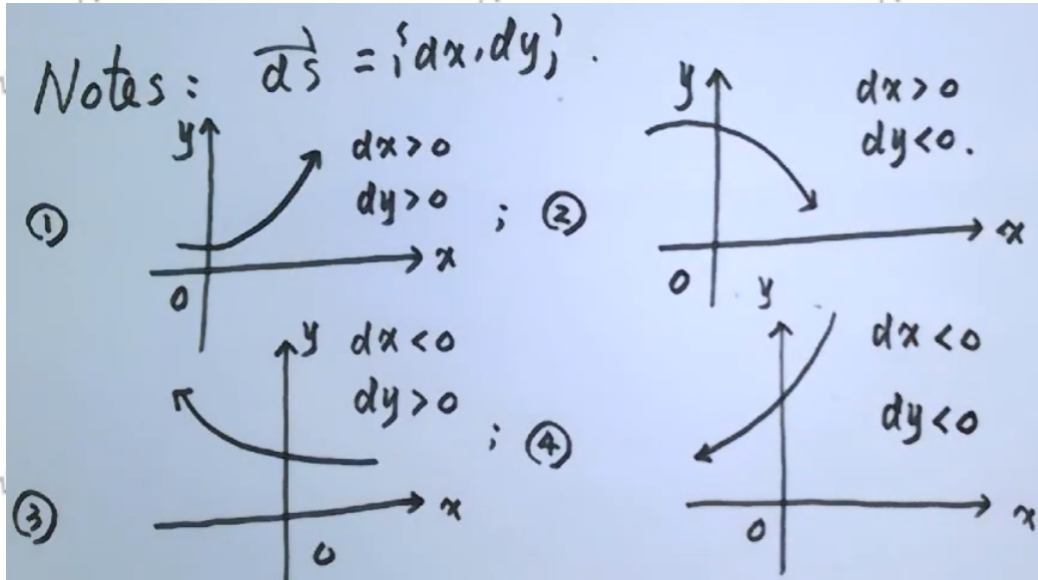 Notes: →ds = {dx, dy}.
① y dx>0
dy>0 ;
x
0
② y dx>0
dy<0.
x
0
③ y dx<0
dy>0 ;
x
0
④ y dx<0
dy<0
x
0